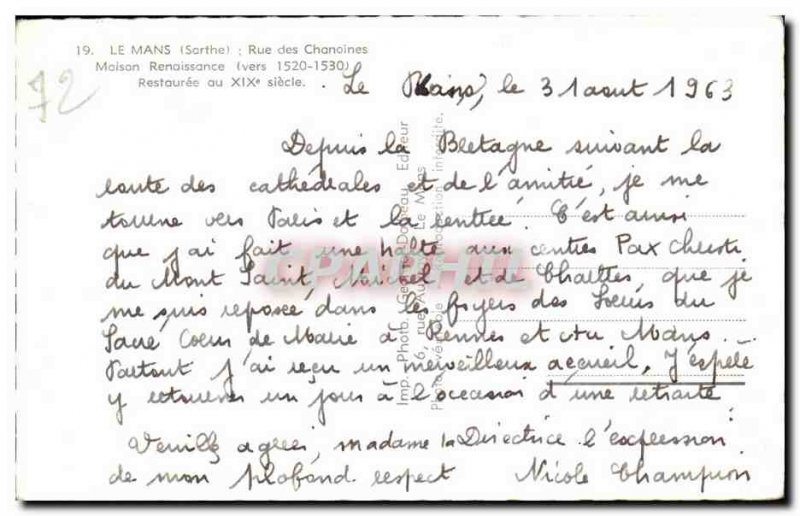 19. LE MANS (Sarthe) : Rue des Chanoines
Maison Renaissance (vers 1520-1530)
Restaurée au XIXe siècle.
72
Le Mans, le 31 aout 1963
Depuis la Bretagne suivant la
route des cathédrales et de l'amitié, je me
tourne vers Paris et la rentrée. C'est ainsi
que j'ai fait une halte aux centres Pax Christi
du Mont Saint, Michel et de Chartres, que je
me suis reposée dans les foyers des Soeurs du
Sacré Coeur de Marie à Rennes et au Mans.
Partout j'ai reçu un merveilleux accueil, J'espère
y retourner un jour à l'occasion d'une retraite
Veuillez agréer, madame la Directrice l'expression
de mon profond respect Nicole Champion
Imp. Photo. Georges Editeur
6, rue Le Mans
Photo véritable interdite.
CPAPHIL